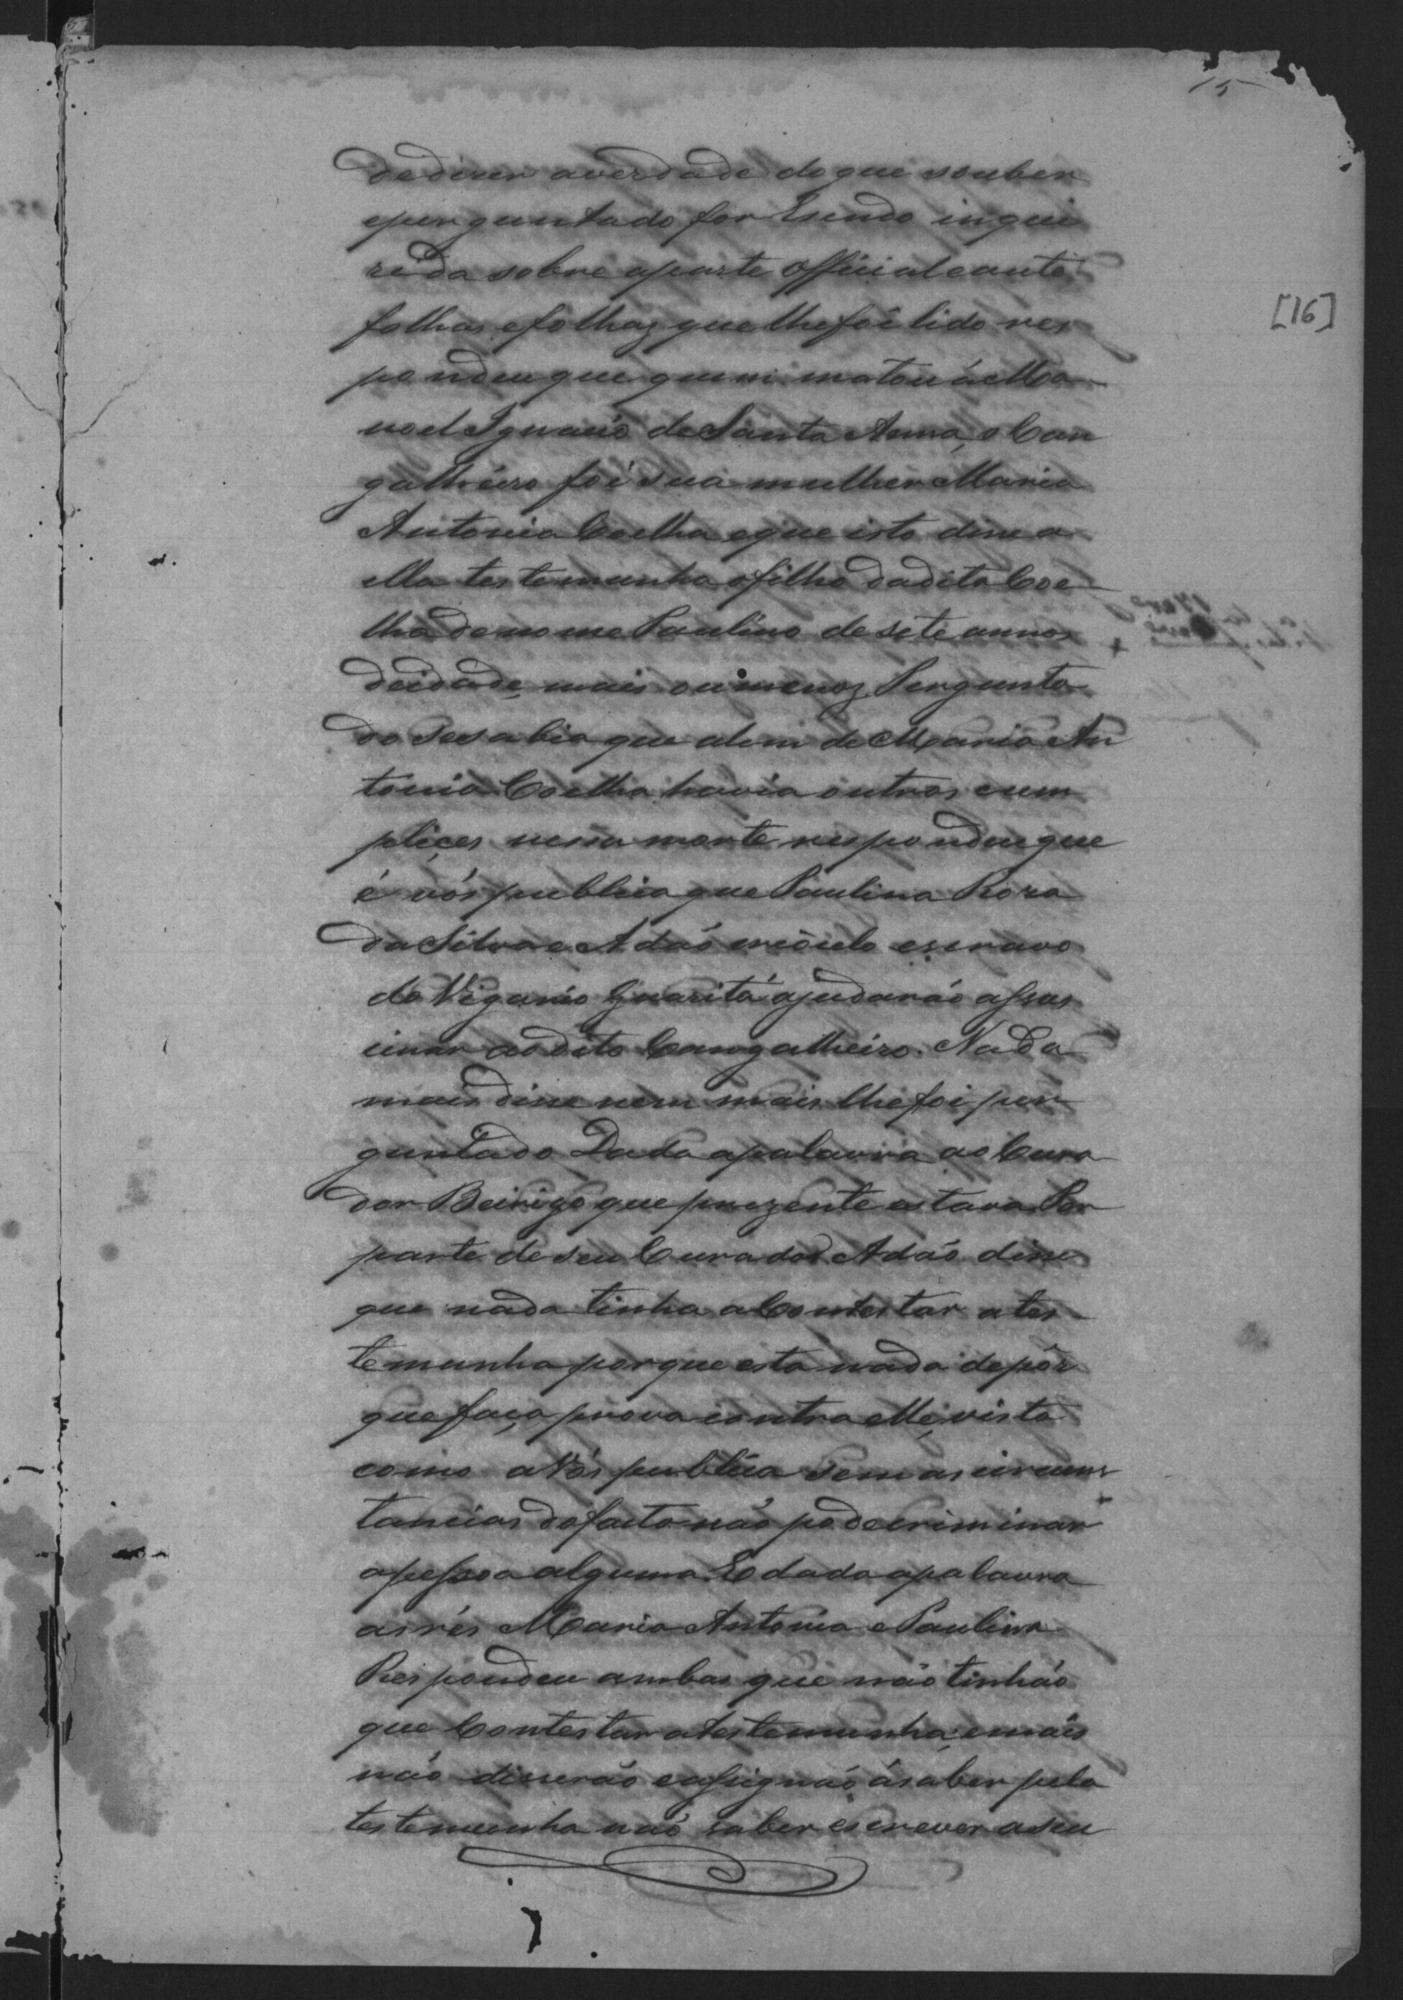 15
[16]
dedizer averdade doque souber
eperguntado for Esendo inqui
rida sobre aparte official ante
folhas efolhas que lhefoi lido res
pondeu que quem matou á Ma
noel Ignacio de Santa Anna, o Can
galheiro foi sua mulher Maria
Antonia Coelha eque isto disse a
ella testemunha ofilho dadita Coe
lha de nome Paulino de sete annos
deidade, mais ou menoz. Pergunta
do sesabia que alem de Maria An
tonia Coelha havia outros cum
plices nessa morte respondeu que
é vós publica que Paulina Roza
da Silva e Adaó creoulo escravo
do Vigario Guaritá ajudaráo assas
cinar aodito Cangalheiro. Nada
mais disse nem mais lhefoi per
guntado Dada apalavra ao Cura
dor Beirigo que prezente estava Por
parte de seu Curadod Adaó disse
que nada tinha aContestar ates
temunha porque esta nada depós
que faça prova contra elle, visto
como a Vós publica sem as circuns
tancias dofacto naó pode criminar
apessoa alguma. E dada apalavra
as rés Maria Antonia e Paulina
Respondeu ambas que naó tinháo
que Contestar atestemunha; emais
naó disseráo eassignaó ásaber pela
testemunha naó saber escrever aseu